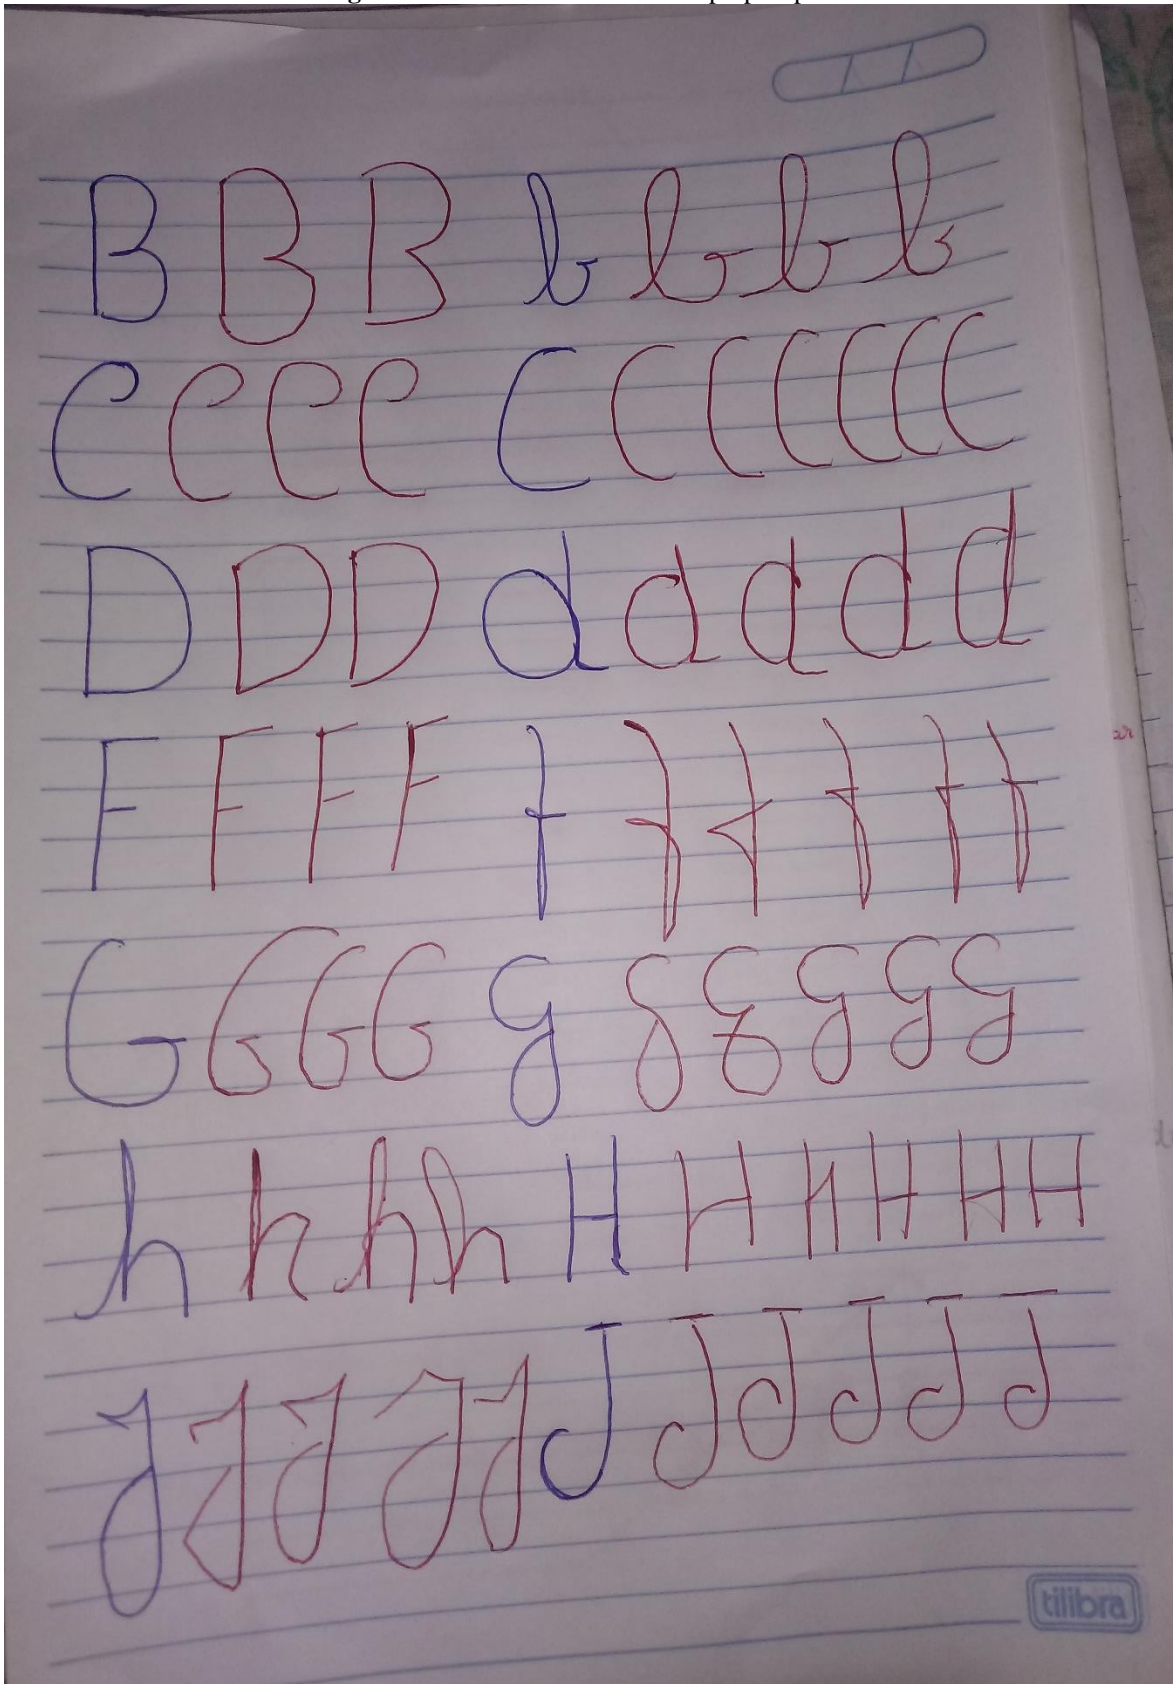 B B B b b b b
C C C C C C C C C C C
D D D d d d d d
F F F F f f f f f f
G G G G g g g g g g
h h h h H H H H H H
J J J J J J J J J J J
tilibra